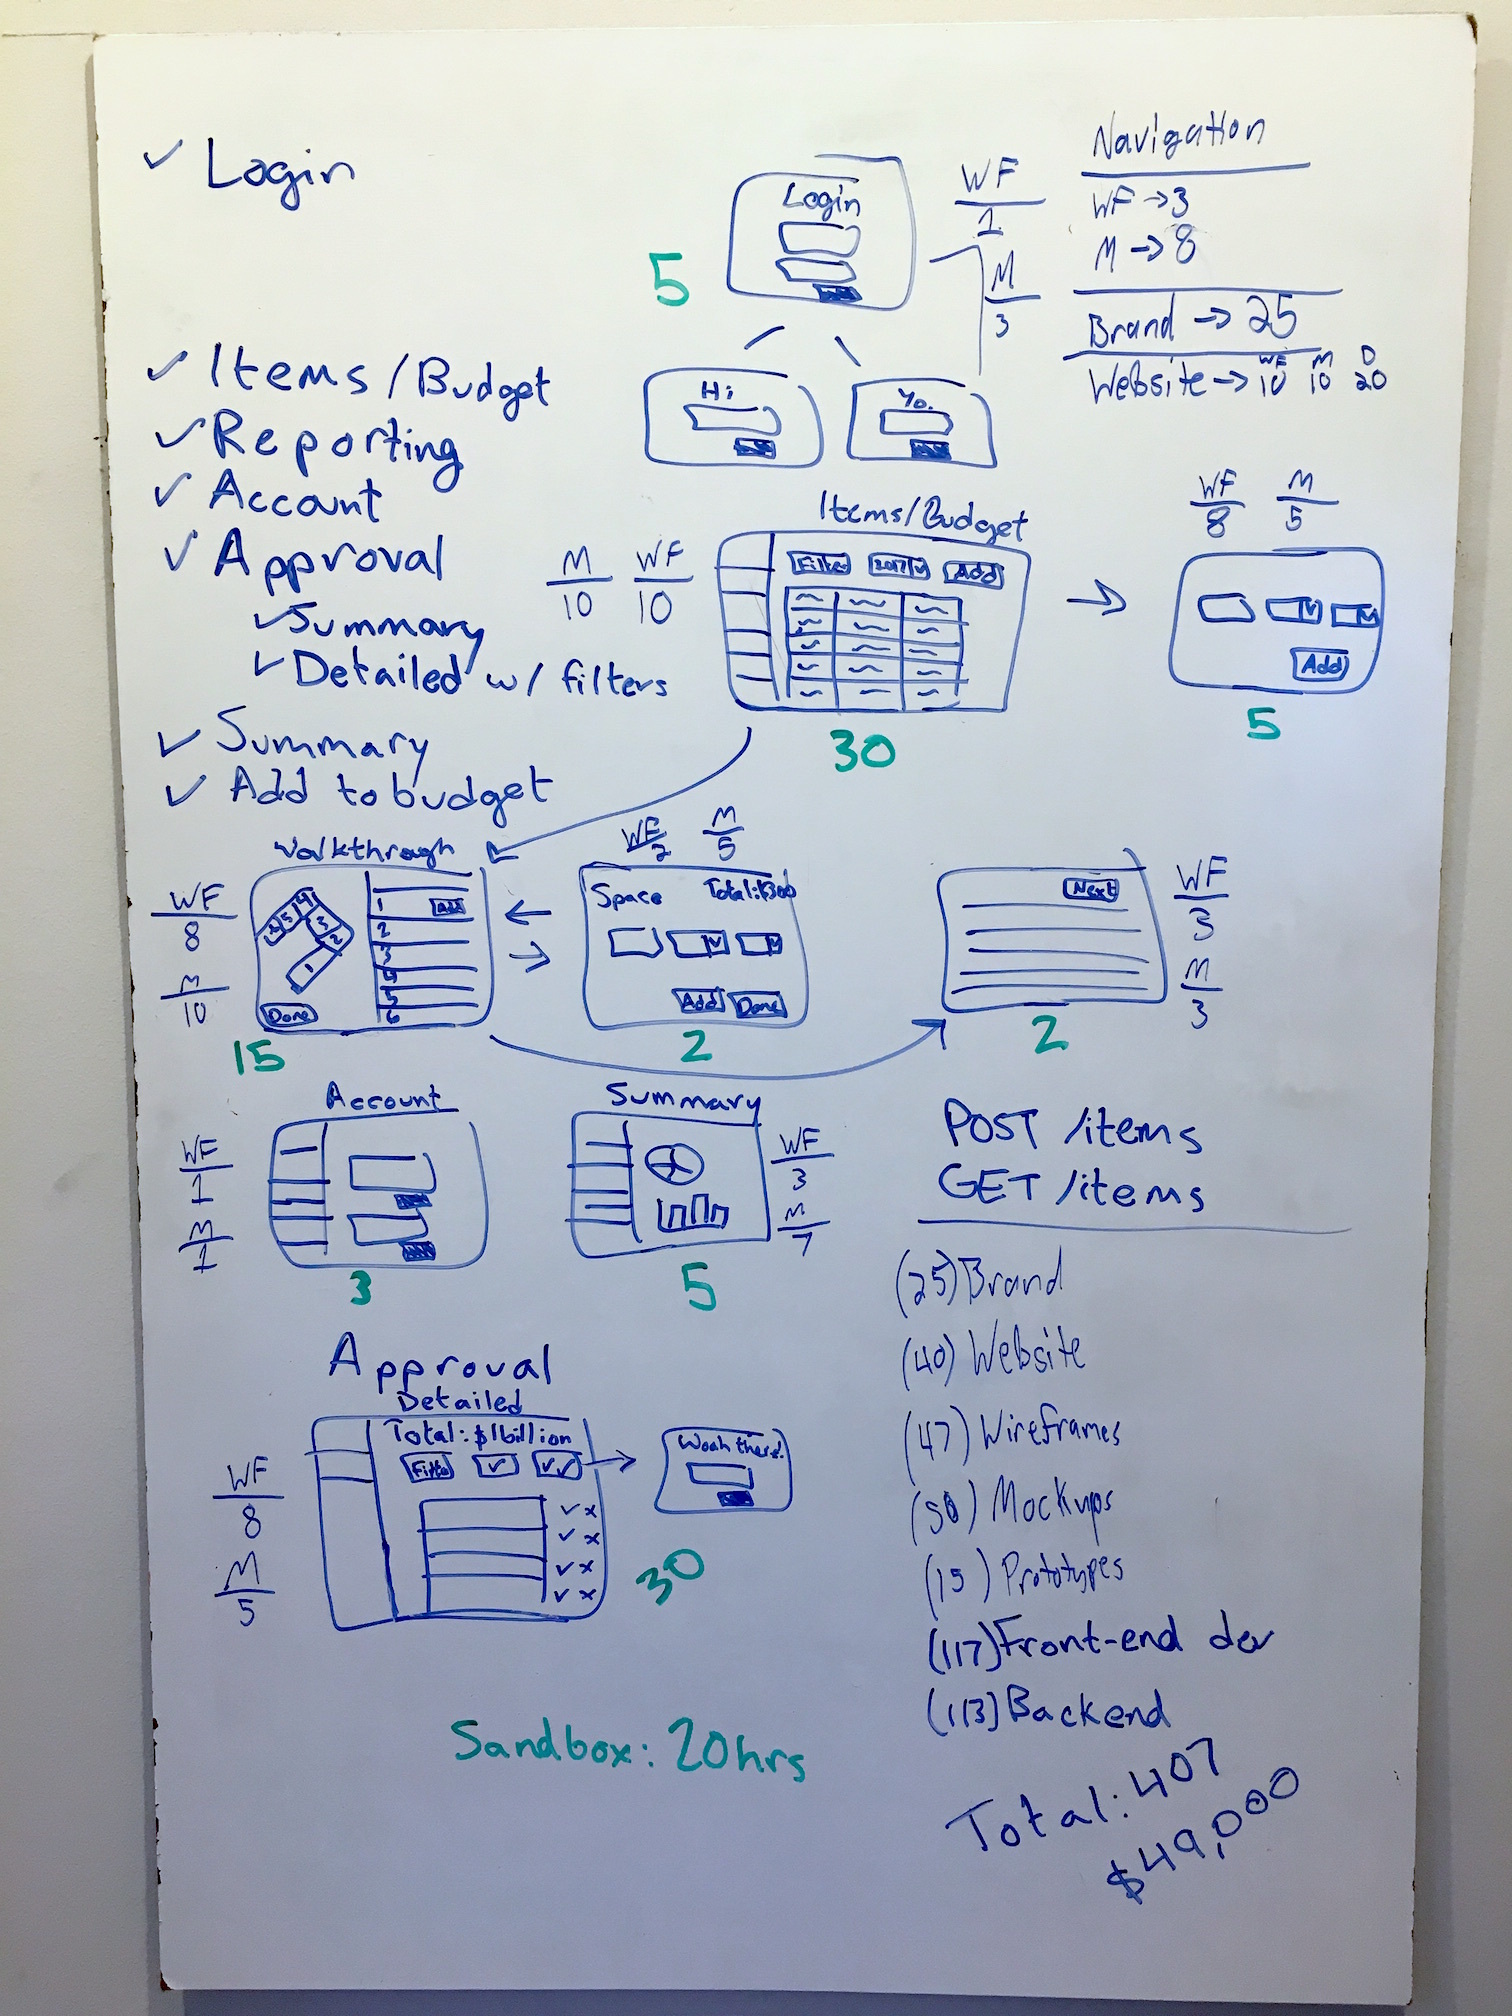 ✓ Login
✓ Items/Budget
✓ Reporting
✓ Account
✓ Approval
✓ Summary
✓ Detailed w/ filters
✓ Summary
✓ Add to budget
Login
5
WF
1
M
3
Hi
Yo.
Navigation
WF → 3
M → 8
Brand → 25
WF M D
Website → 10 10 20
Items/Budget
M WF
10 10
Filter 2017 Add
30
WF M
8 5
Add
5
Walkthrough
WF
8
M
10
1 2 3 4 5
1 Add
2
3
4
5
6
Done
15
WF M
2 5
Space Total: $300
Add Done
2
Next
WF
3
M
3
2
Account
WF
1
M
1
3
Summary
WF
3
M
7
5
POST /items
GET /items
Approval
Detailed
Total: $1billion
Filter ✓ ✓✓
✓ x
✓ x
✓ x
✓ x
WF
8
M
5
Woah there!
30
(25) Brand
(40) Website
(47) Wireframes
(50) Mockups
(15) Prototypes
(117) Front-end dev
(113) Backend
Total: 407
$49,000
Sandbox: 20hrs